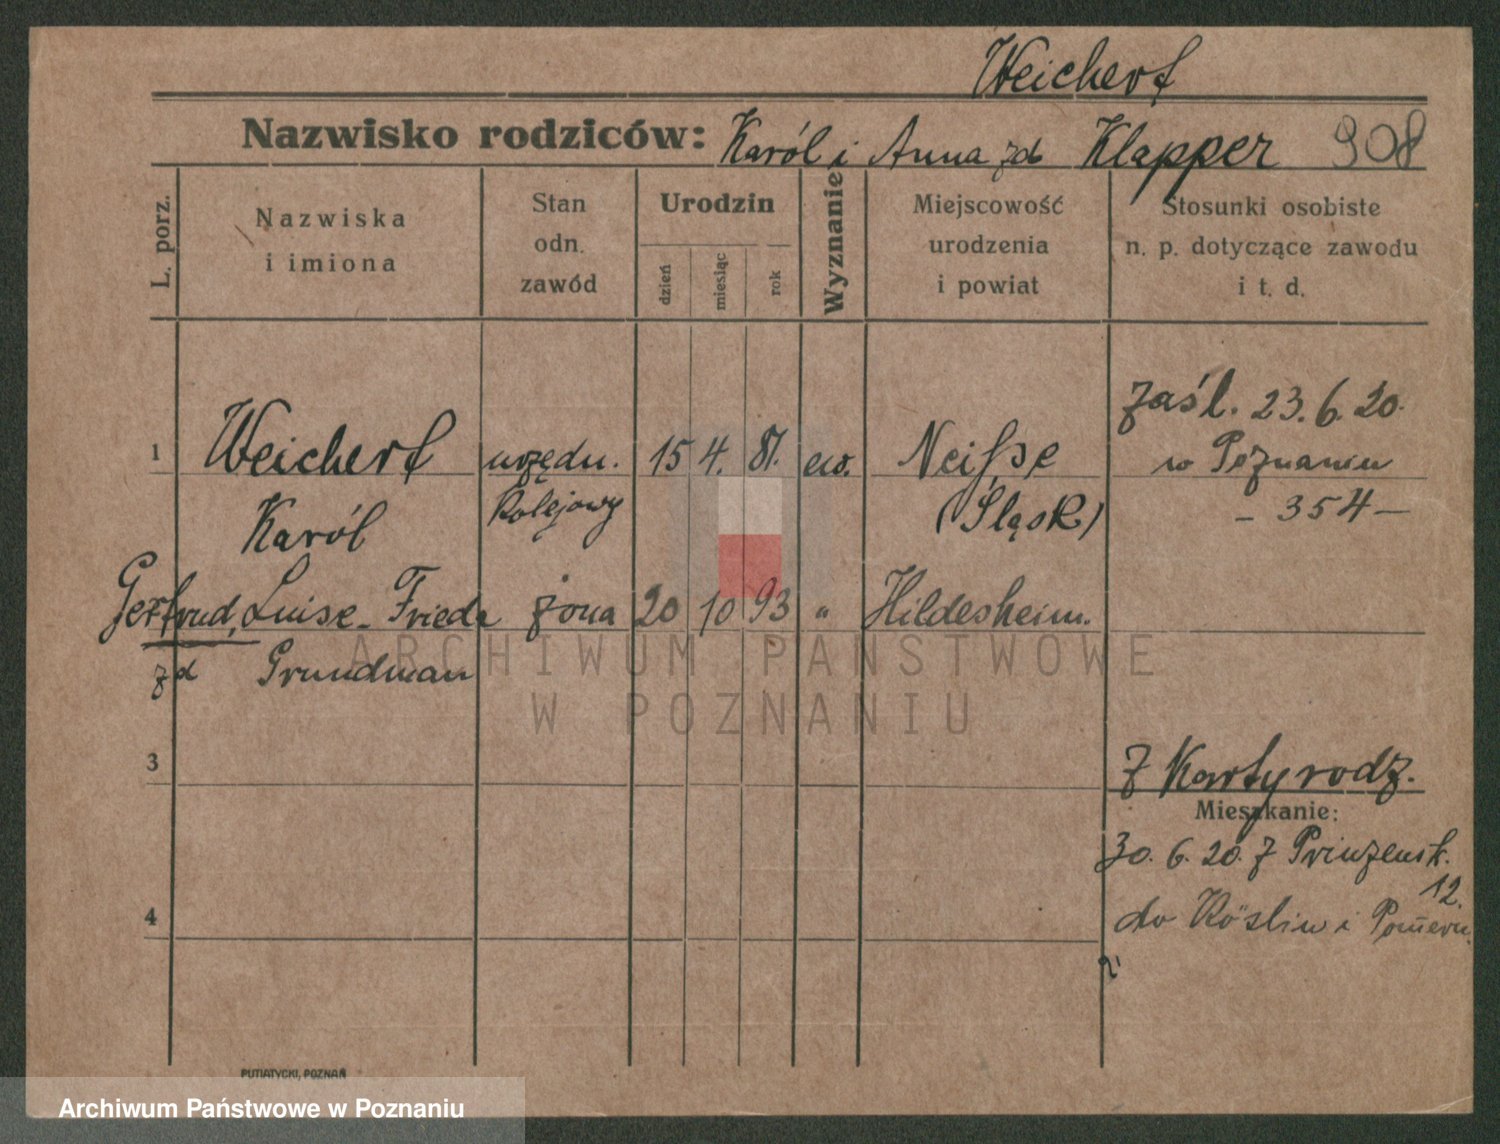 Weichert
Nazwisko rodziców: Karól i Anna zd Klapper 908
L. porz.
Nazwiska
i imiona
Stan
odn.
zawód
Urodzin
dzień
miesiąc
rok
Wyznanie
Miejscowość
urodzenia
i powiat
Stosunki osobiste
n. p. dotyczące zawodu
i t. d.
1 Weichert urzędn. 15 4. 87. ew. Neisse
Karól kolejowy (Śląsk)
zaśl. 23.6.20.
w Poznaniu
- 354 -
Gertrud, Luise - Frieda żona 20 10 93 " Hildesheim.
zd Grundman
3
Z Karty rodz.
Mieszkanie:
30.6.20. z Prinzenstr.
12.
do Köslin i Pomern.
4
PUTIATYCKI, POZNAŃ
ARCHIWUM PAŃSTWOWE
W POZNANIU
Archiwum Państwowe w Poznaniu